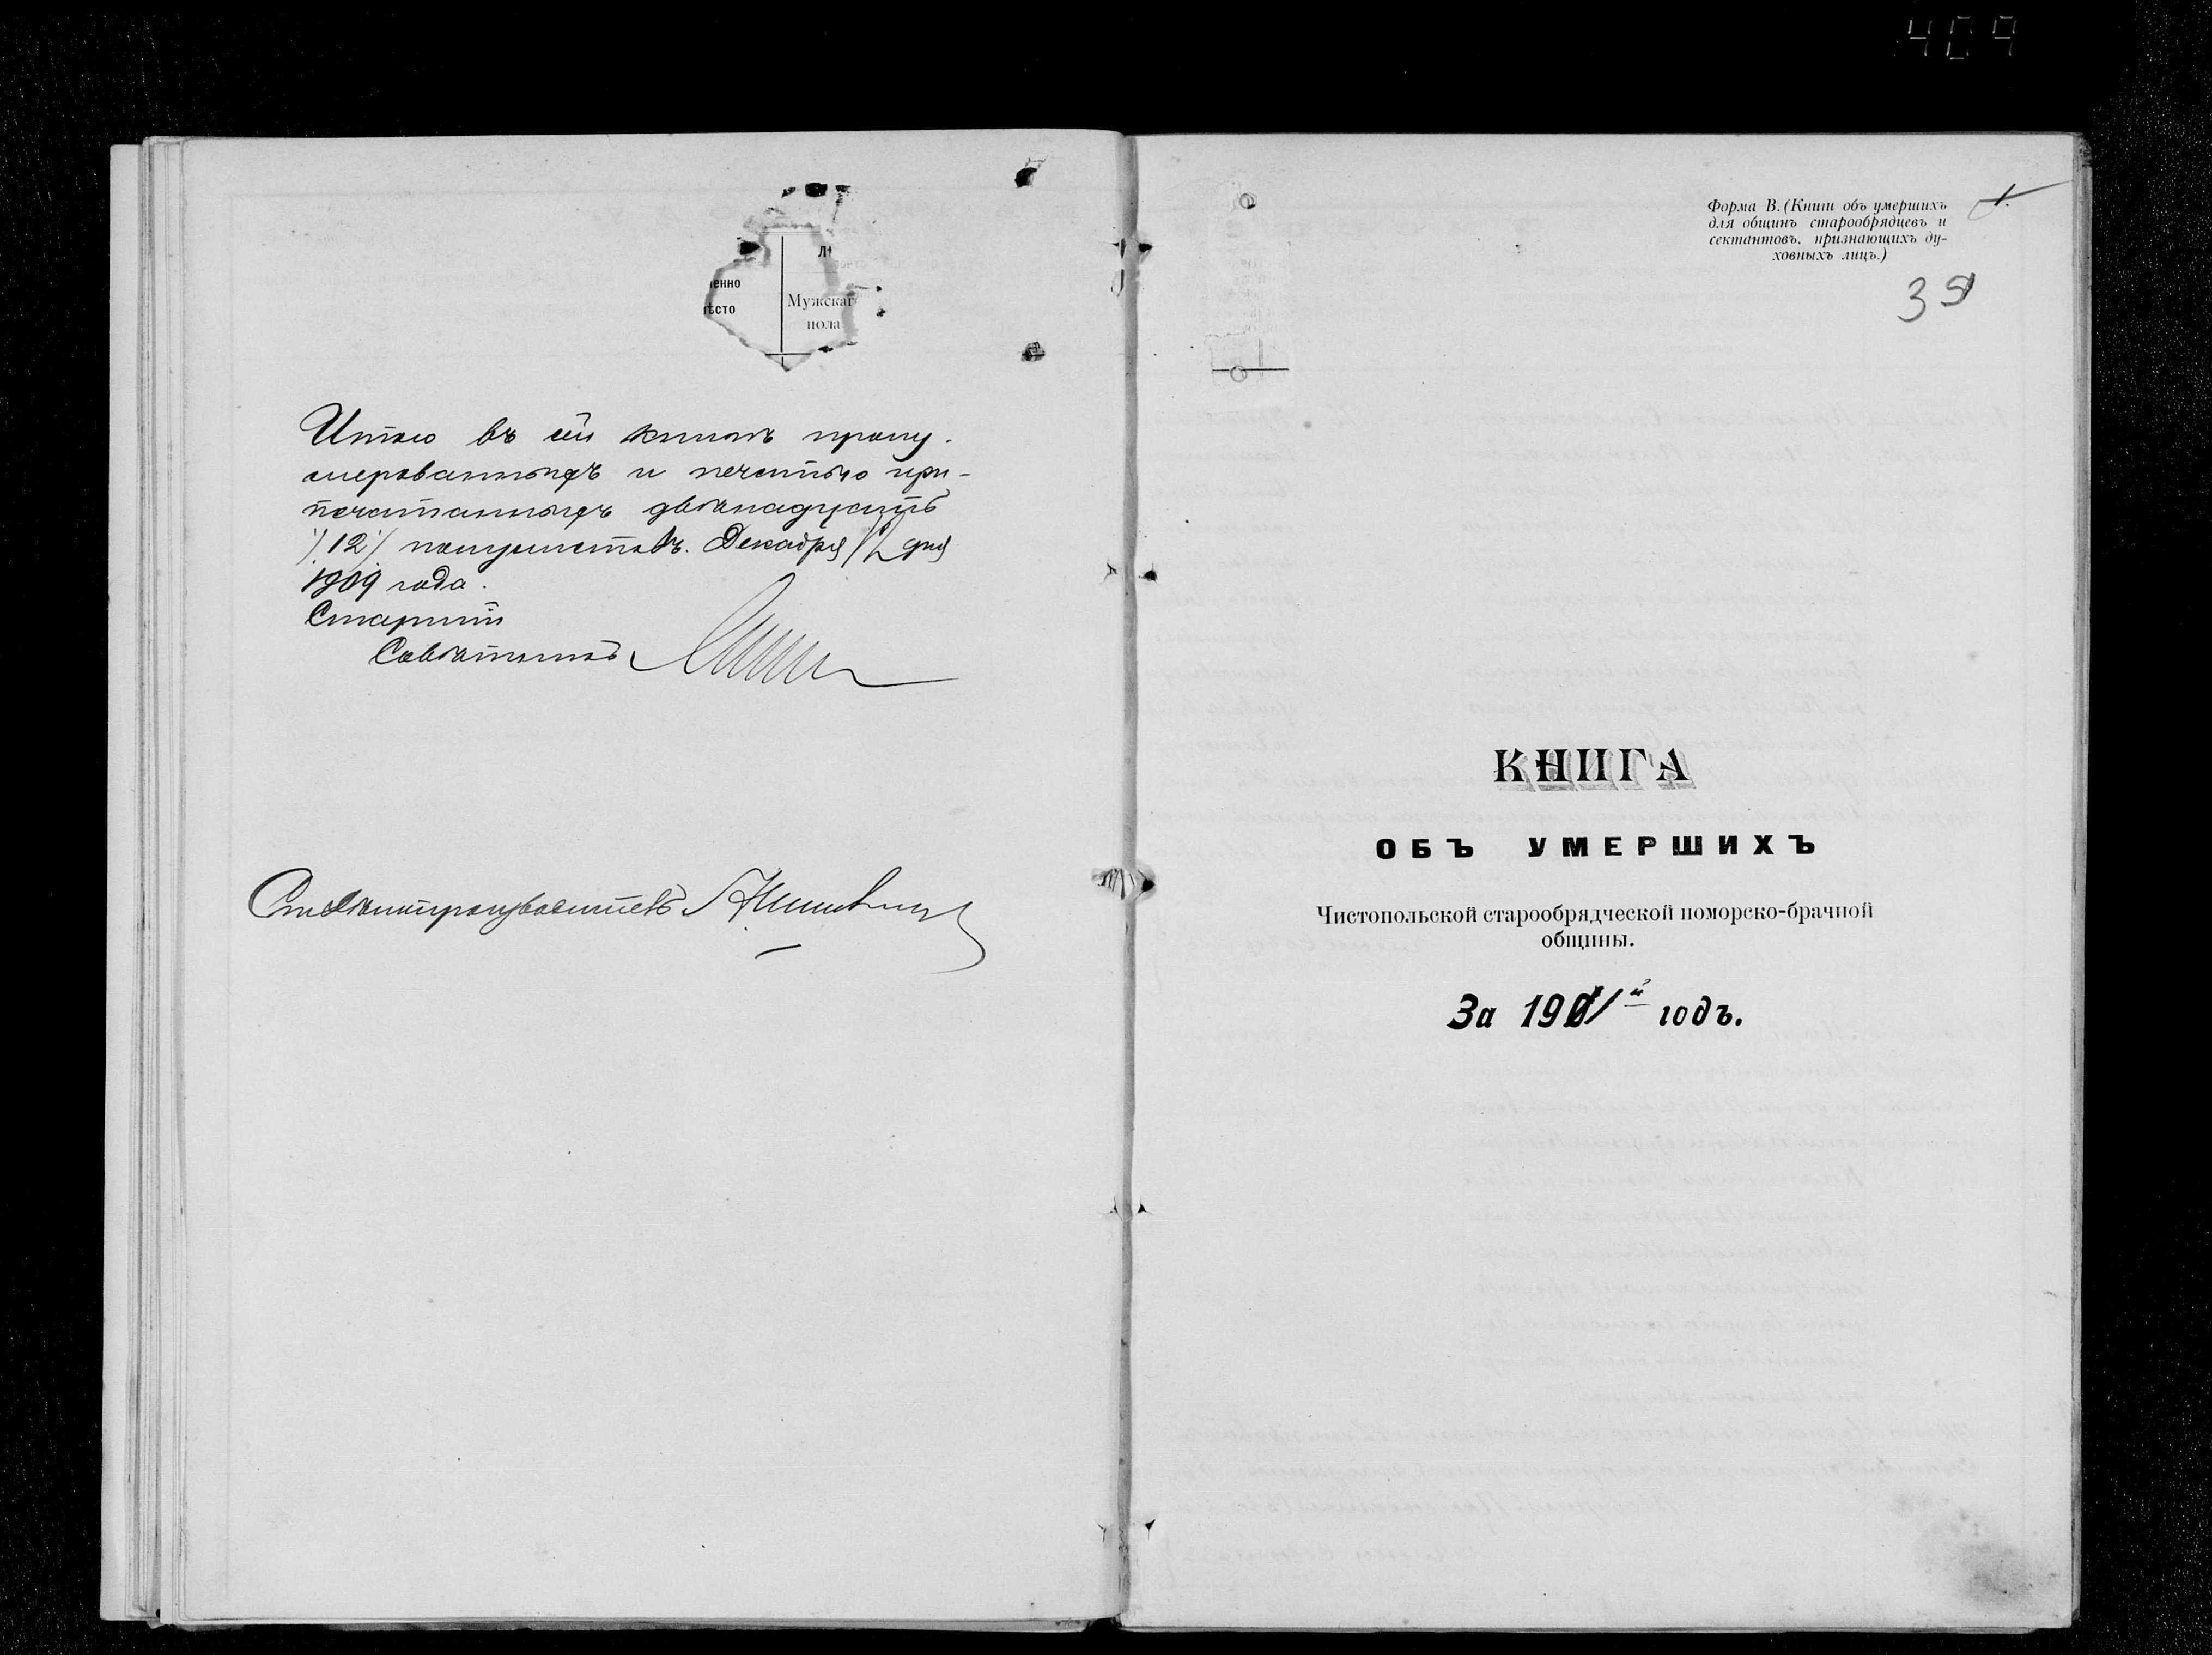 409
л
енно
ѣсто
Мужскаг
пола
Итого въ сей книгѣ прону-
мерованныхъ и печатью при-
печатанныхъ двѣнадцать
/12/ полулистовъ. Декабря дня
1909 года.
Старшій
Совѣтникъ
Столоначальникъ
Форма В. (Книги объ умершихъ
для общинъ старообрядцевъ и
сектантовъ, признающихъ ду-
ховныхъ лицъ.)
1.
39
КНИГА
ОБЪ УМЕРШИХЪ
Чистопольской старообрядческой поморско-брачной
общины.
За 1911й годъ.